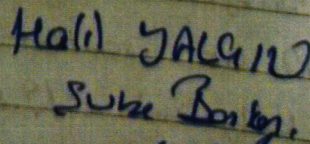 Halil YALÇIN
Şube Başkanı